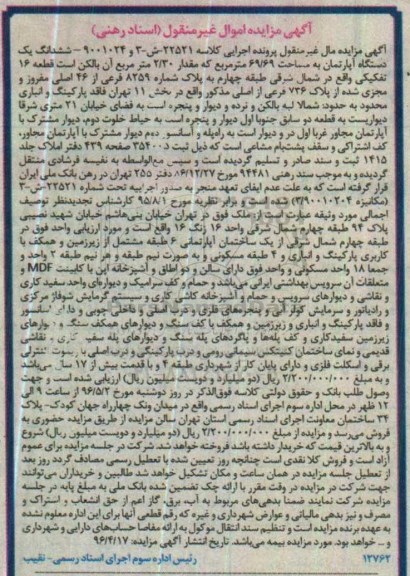 آگهی مزایده اموال غیرمنقول (اسناد رهنی)
آگهی مزایده مال غیرمنقول پرونده اجرایی کلاسه ۲۲۵۲۱-ش-۳ و ۹۰۰۱۰۲۴ - ششدانگ یک
دستگاه آپارتمان به مساحت ۶۹/۶۹ مترمربع که مقدار ۲/۳۰ متر مربع آن بالکن است قطعه ۱۶
تفکیکی واقع در شمال شرقی طبقه چهارم به پلاک شماره ۸۲۵۹ فرعی از ۴۶ اصلی مفروز و
مجزی شده از پلاک ۷۳۶ فرعی از اصلی مذکور واقع در بخش ۱۱ تهران فاقد پارکینگ و انباری
محدود به حدود: شمالا به بالکن و نرده و دیوار و پنجره است به فضای خیابان ۲۱ متری شرقا
دیواریست به قطعه دو سابق جنوبا اول دیوار و پنجره است به حیاط خلوت دوم، دیوار مشترک با
آپارتمان مجاور غربا اول در و دیوار است به راه‌پله و آسانسور دوم دیوار مشترک با آپارتمان مجاور،
کف اشتراکی و سقف پشت‌بام مشاعی است که ذیل ثبت ۳۵۴۰۰۵ صفحه ۴۳۹ دفتر املاک جلد
۱۴۱۵ ثبت و سند صادر و تسلیم گردیده است و سپس مع‌الواسطه به نفیسه فرشادی منتقل
گردیده و به موجب سند رهنی ۹۴۴۸۱ مورخ ۸۶/۱۲/۲۷ دفتر ۲۵۵ تهران در رهن بانک ملی ایران
قرار گرفته است که به علت عدم ایفای تعهد منجر به صدور اجراییه تحت شماره ۲۲۵۲۱-ش-۳
(مکانیزه ۳/۹۰۰۱۰۲۰۴) شده است و برابر نظریه مورخ ۹۵/۸/۱ کارشناس تجدیدنظر توصیف
اجمالی مورد وثیقه عبارت است از ملک فوق در تهران خیابان بنی‌هاشم خیابان شهید نصیبی
پلاک ۹۴ طبقه چهارم شمال شرقی واحد ۱۶ زنگ ۱۶ واقع است و مورد ارزیابی واحد فوق در
طبقه چهارم شمال شرقی از یک ساختمان آپارتمانی ۶ طبقه مشتمل از زیرزمین و همکف با
کاربری پارکینگ و انباری و ۴ طبقه مسکونی و به صورت نیم طبقه و هر نیم طبقه ۲ واحد و
جمعا ۱۸ واحد مسکونی و واحد فوق دارای سالن و دو اطاق و آشپزخانه اپن با کابینت MDF و
متعلقات آن سرویس بهداشتی ایرانی می‌باشد و حمام و کف سرامیک و دیواره‌ای واحد سفید کاری
و نقاشی و دیوارهای سرویس و حمام و آشپزخانه کاشی کاری و سیستم گرمایش شوفاژ مرکزی
و رادیاتور و سرمایش کولر آبی و پنجره‌های فلزی و درب اصلی و داخلی چوبی و دارای آسانسور
فاقد پارکینگ و انباری و زیرزمین و همکف با کف سنگ و دیوارهای همکف سنگ و دیوارهای
زیرزمین سفیدکاری و کف پله‌ها و پاگردهای پله سنگ و دیوارهای پله سفید کاری و نقاشی
قدیمی و نمای ساختمان کنیتکس سیمانی رومی و درب پارکینگی و درب اصلی با ریموت کنترلی
برقی و اسکلت فلزی و دارای پایان کار از شهرداری منطقه ۴ و با قدمت بیش از ۱۷ سال می‌باشد
و به مبلغ ۲/۲۰۰/۰۰۰/۰۰۰ ریال (دو میلیارد و دویست میلیون ریال) ارزیابی شده است و جهت
وصول طلب بانک و حقوق دولتی کلاسه فوق‌الذکر در روز دوشنبه مورخ ۹۶/۵/۲ از ساعت ۹ الی
۱۲ ظهر در محل اداره سوم اجرای اسناد رسمی واقع در میدان ونک چهارراه جهان کودک- پلاک
۳۴ ساختمان معاونت اجرای اسناد رسمی استان تهران سالن مزایده از طریق مزایده حضوری به
فروش می‌رسد و مزایده از مبلغ ۲/۲۰۰/۰۰۰/۰۰۰ ریال (دو میلیارد و دویست میلیون ریال) شروع
و به بالاترین قیمت که خریدار داشته باشد فروخته خواهد شد شرکت در جلسه مزایده برای عموم
آزاد است و فروش کلا نقدی است چنانچه روز تعیین شده با تعطیل رسمی مصادف گردد روز بعد
از تعطیل جلسه مزایده در همان ساعت و مکان تشکیل خواهد شد طالبین و خریداران می‌توانند
جهت شرکت در مزایده در وقت مقرر با ارائه چک تضمین شده بانک ملی به مبلغ پایه در جلسه
مزایده شرکت نمایند ضمنا بدهی‌های مربوط به آب، برق، گاز اعم از حق انشعاب و اشتراک و
مصرف و نیز بدهی مالیاتی و عوارض شهرداری و غیره که رقم قطعی آنها برای این اداره معلوم نشده
به عهده برنده مزایده است و تنظیم سند انتقال موکول به ارائه مفاصا حساب‌های دارایی و شهرداری
و ... خواهد بود. مورد مزایده بیمه می‌باشد. تاریخ انتشار آگهی مزایده: ۹۶/۴/۱۷
۱۲۷۶۲ رئیس اداره سوم اجرای اسناد رسمی- نقیب